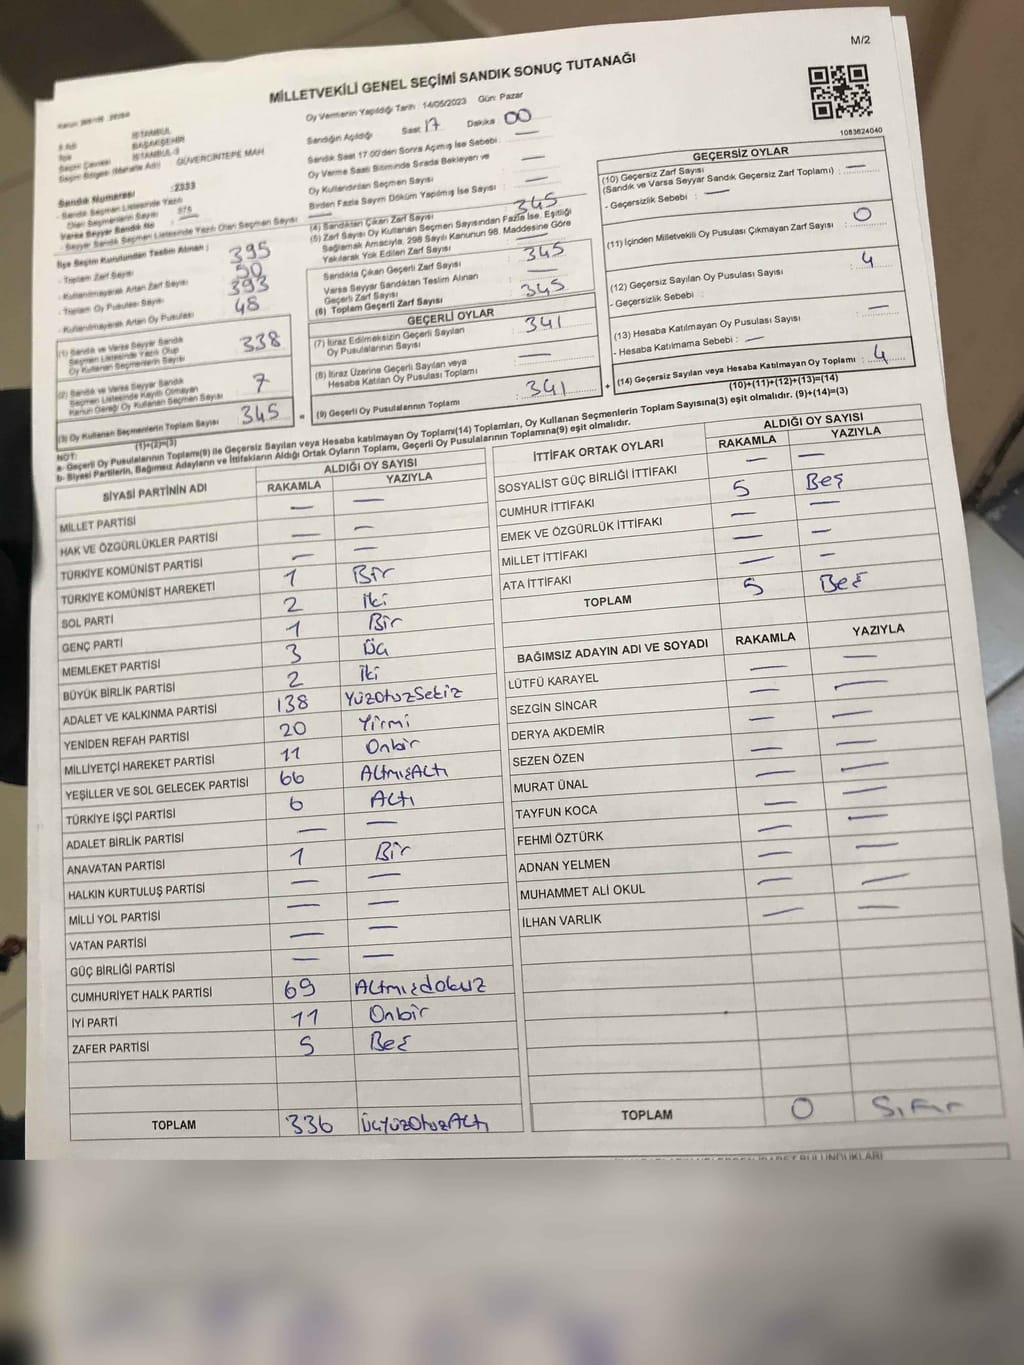 M/2
MİLLETVEKİLİ GENEL SEÇİMİ SANDIK SONUÇ TUTANAĞI
İSTANBUL
BAŞAKŞEHİR
İSTANBUL-3
Seçim Bölgesi (Mahalle Adı) : GÜVERCİNTEPE MAH
Sandık Numarası :2333
- Sandık Seçmen Listesinde Yazılı
Olan Seçmenlerin Sayısı : 375
Varsa Seyyar Sandık No :
- Seyyar Sandık Seçmen Listesinde Yazılı Olan Seçmen Sayısı : —
İlçe Seçim Kurulundan Teslim Alınan ;
- Toplam Zarf Sayısı 395
- Kullanılmayarak Artan Zarf Sayısı 50
- Toplam Oy Pusulası Sayısı 393
- Kullanılmayarak Artan Oy Pusulası 48
(1) Sandık ve Varsa Seyyar Sandık
Seçmen Listesinde Yazılı Olup
Oy Kullanan Seçmenlerin Sayısı 338
(2) Sandık ve Varsa Seyyar Sandık
Seçmen Listesinde Kayıtlı Olmayan
Kanun Gereği Oy Kullanan Seçmen Sayısı 7
(3) Oy Kullanan Seçmenlerin Toplam Sayısı 345
(1)+(2)=(3)
Oy Vermenin Yapıldığı Tarih : 14/05/2023 Gün: Pazar
Sandığın Açıldığı Saat 17 Dakika : 00
Sandık Saat 17:00'den Sonra Açılmış İse Sebebi : —
Oy Verme Saati Bitiminde Sırada Bekleyen ve
Oy Kullandırılan Seçmen Sayısı : —
Birden Fazla Sayım Döküm Yapılmış İse Sayısı : —
(4) Sandıktan Çıkan Zarf Sayısı : 345
(5) Zarf Sayısı Oy Kullanan Seçmen Sayısından Fazla İse, Eşitliği
Sağlamak Amacıyla, 298 Sayılı Kanunun 98. Maddesine Göre
Yakılarak Yok Edilen Zarf Sayısı : —
Sandıkta Çıkan Geçerli Zarf Sayısı : 345
Varsa Seyyar Sandıktan Teslim Alınan
Geçerli Zarf Sayısı : —
(6) Toplam Geçerli Zarf Sayısı : 345
GEÇERLİ OYLAR
(7) İtiraz Edilmeksizin Geçerli Sayılan
Oy Pusulalarının Sayısı : 341
(8) İtiraz Üzerine Geçerli Sayılan veya
Hesaba Katılan Oy Pusulası Toplamı : —
= (9) Geçerli Oy Pusulalarının Toplamı : 341 +
1083624040
GEÇERSİZ OYLAR
(10) Geçersiz Zarf Sayısı
(Sandık ve Varsa Seyyar Sandık Geçersiz Zarf Toplamı) : —
- Geçersizlik Sebebi : —
(11) İçinden Milletvekili Oy Pusulası Çıkmayan Zarf Sayısı : 0
(12) Geçersiz Sayılan Oy Pusulası Sayısı : 4
- Geçersizlik Sebebi :
(13) Hesaba Katılmayan Oy Pusulası Sayısı : —
- Hesaba Katılmama Sebebi : —
(14) Geçersiz Sayılan veya Hesaba Katılmayan Oy Toplamı : 4
(10)+(11)+(12)+(13)=(14)
NOT:
a- Geçerli Oy Pusulalarının Toplamı(9) ile Geçersiz Sayılan veya Hesaba katılmayan Oy Toplamı(14) Toplamları, Oy Kullanan Seçmenlerin Toplam Sayısına(3) eşit olmalıdır. (9)+(14)=(3)
b- Siyasi Partilerin, Bağımsız Adayların ve İttifakların Aldığı Ortak Oyların Toplamı, Geçerli Oy Pusulalarının Toplamına(9) eşit olmalıdır.
SİYASİ PARTİNİN ADI ALDIĞI OY SAYISI
RAKAMLA YAZIYLA
MİLLET PARTİSİ — —
HAK VE ÖZGÜRLÜKLER PARTİSİ — —
TÜRKİYE KOMÜNİST PARTİSİ — —
TÜRKİYE KOMÜNİST HAREKETİ 1 Bir
SOL PARTİ 2 İki
GENÇ PARTİ 1 Bir
MEMLEKET PARTİSİ 3 Üç
BÜYÜK BİRLİK PARTİSİ 2 İki
ADALET VE KALKINMA PARTİSİ 138 YüzOtuzSekiz
YENİDEN REFAH PARTİSİ 20 Yirmi
MİLLİYETÇİ HAREKET PARTİSİ 11 Onbir
YEŞİLLER VE SOL GELECEK PARTİSİ 66 AltmışAltı
TÜRKİYE İŞÇİ PARTİSİ 6 Altı
ADALET BİRLİK PARTİSİ — —
ANAVATAN PARTİSİ 1 Bir
HALKIN KURTULUŞ PARTİSİ — —
MİLLİ YOL PARTİSİ — —
VATAN PARTİSİ — —
GÜÇ BİRLİĞİ PARTİSİ — —
CUMHURİYET HALK PARTİSİ 69 Altmışdokuz
İYİ PARTİ 11 Onbir
ZAFER PARTİSİ 5 Beş
TOPLAM 336 ÜçyüzOtuzAltı
İTTİFAK ORTAK OYLARI ALDIĞI OY SAYISI
RAKAMLA YAZIYLA
SOSYALİST GÜÇ BİRLİĞİ İTTİFAKI — —
CUMHUR İTTİFAKI 5 Beş
EMEK VE ÖZGÜRLÜK İTTİFAKI — —
MİLLET İTTİFAKI — —
ATA İTTİFAKI — —
TOPLAM 5 Beş
BAĞIMSIZ ADAYIN ADI VE SOYADI RAKAMLA YAZIYLA
LÜTFÜ KARAYEL — —
SEZGİN SİNCAR — —
DERYA AKDEMİR — —
SEZEN ÖZEN — —
MURAT ÜNAL — —
TAYFUN KOCA — —
FEHMİ ÖZTÜRK — —
ADNAN YELMEN — —
MUHAMMET ALİ OKUL — —
İLHAN VARLIK — —
TOPLAM 0 Sıfır